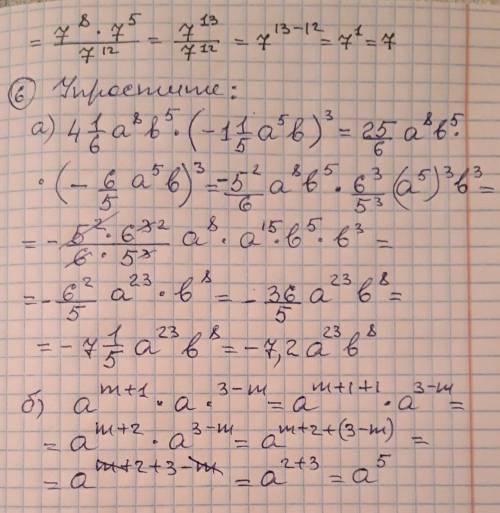 = 7⁸ · 7⁵ / 7¹² = 7¹³ / 7¹² = 7¹³⁻¹² = 7¹ = 7
⑥ Упростите:
а) 4 1/6 a⁸b⁵ · (-1 1/5 a⁵b)³ = 25/6 a⁸b⁵ ·
· (- 6/5 a⁵b)³ = -5²/6 a⁸b⁵ · 6³/5³ (a⁵)³b³ =
= - 5² · 6³ ² / 6 · 5³ a⁸ · a¹⁵ · b⁵ · b³ =
= - 6²/5 a²³ · b⁸ = - 36/5 a²³b⁸ =
= -7 1/5 a²³b⁸ = -7,2a²³b⁸
б) a^(m+1) · a · ^(3-m) = a^(m+1+1) · a^(3-m) =
= a^(m+2) · a^(3-m) = a^(m+2+(3-m)) =
= a^(m+2+3-m) = a^(2+3) = a⁵